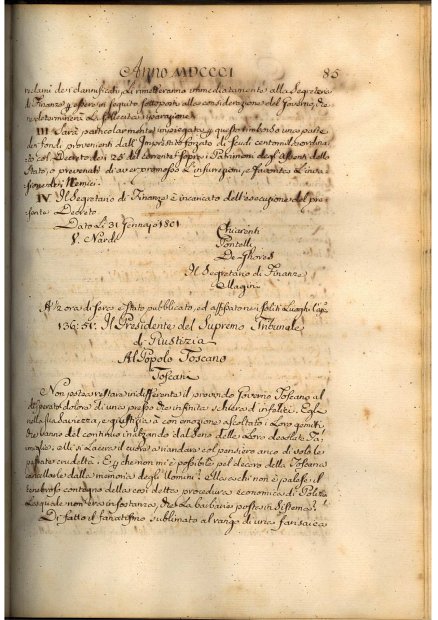 Anno MDCCCI 85
reclami dei dannificati, si rimetteranno immediatamente alla Segreteria
di Finanze p essere in seguito sottoposti alla considerazione del Governo, che
ne determinerà la sollecita riparazione.
III Sarà particolarmente impiegata a questo rimborso una parte
dei fondi provenienti dall'Imprestito forzato di Scudi centomila ordina
to col Decreto dei 25 del corrente sopra i Patrimoni degl'Assenti dallo
Stato, o prevenuti di aver promosso l'insurrezione, e favorito l'inva
sione dei Nemici.
IV. Il Segretario di Finanze è incaricato dell'esecuzione del pre
sente Decreto
Dato li 31 Gennajo 1801
V. Nardi Chiarenti
Pontelli
De Ghores
Il Segretario di Finanze
Pellegrini
A ½ ora di sera è stato pubblicato, ed affisso ai soliti Luoghi
136:51: Il Presidente del Supremo Tribunale
di Giustizia
Al Popolo Toscano
Toscani
Non poteva restare indifferente il provvido Governo Toscano al
disperato dolore di una presso che infinita schiera d'infelici. Egli
nella sua saviezza, e giustizia à con emozione ascoltato i loro gemiti
che vanno del continuo inalzando dal seno delle loro desolate Fa
miglie, e gli si lacera il cuore riandando col pensiero anco di volo le
passate crudeltà. E perchè non mi è possibile pel decoro della Toscana
cancellarle dalla memoria degli Uomini? Ma a chi non è palese il
tenebroso contegno della così detta procedura economica di Polizia
la quale non era in sostanza che la barbarie posta in sistema?
Di fatto il fanatismo sublimato al rango di una farisaica